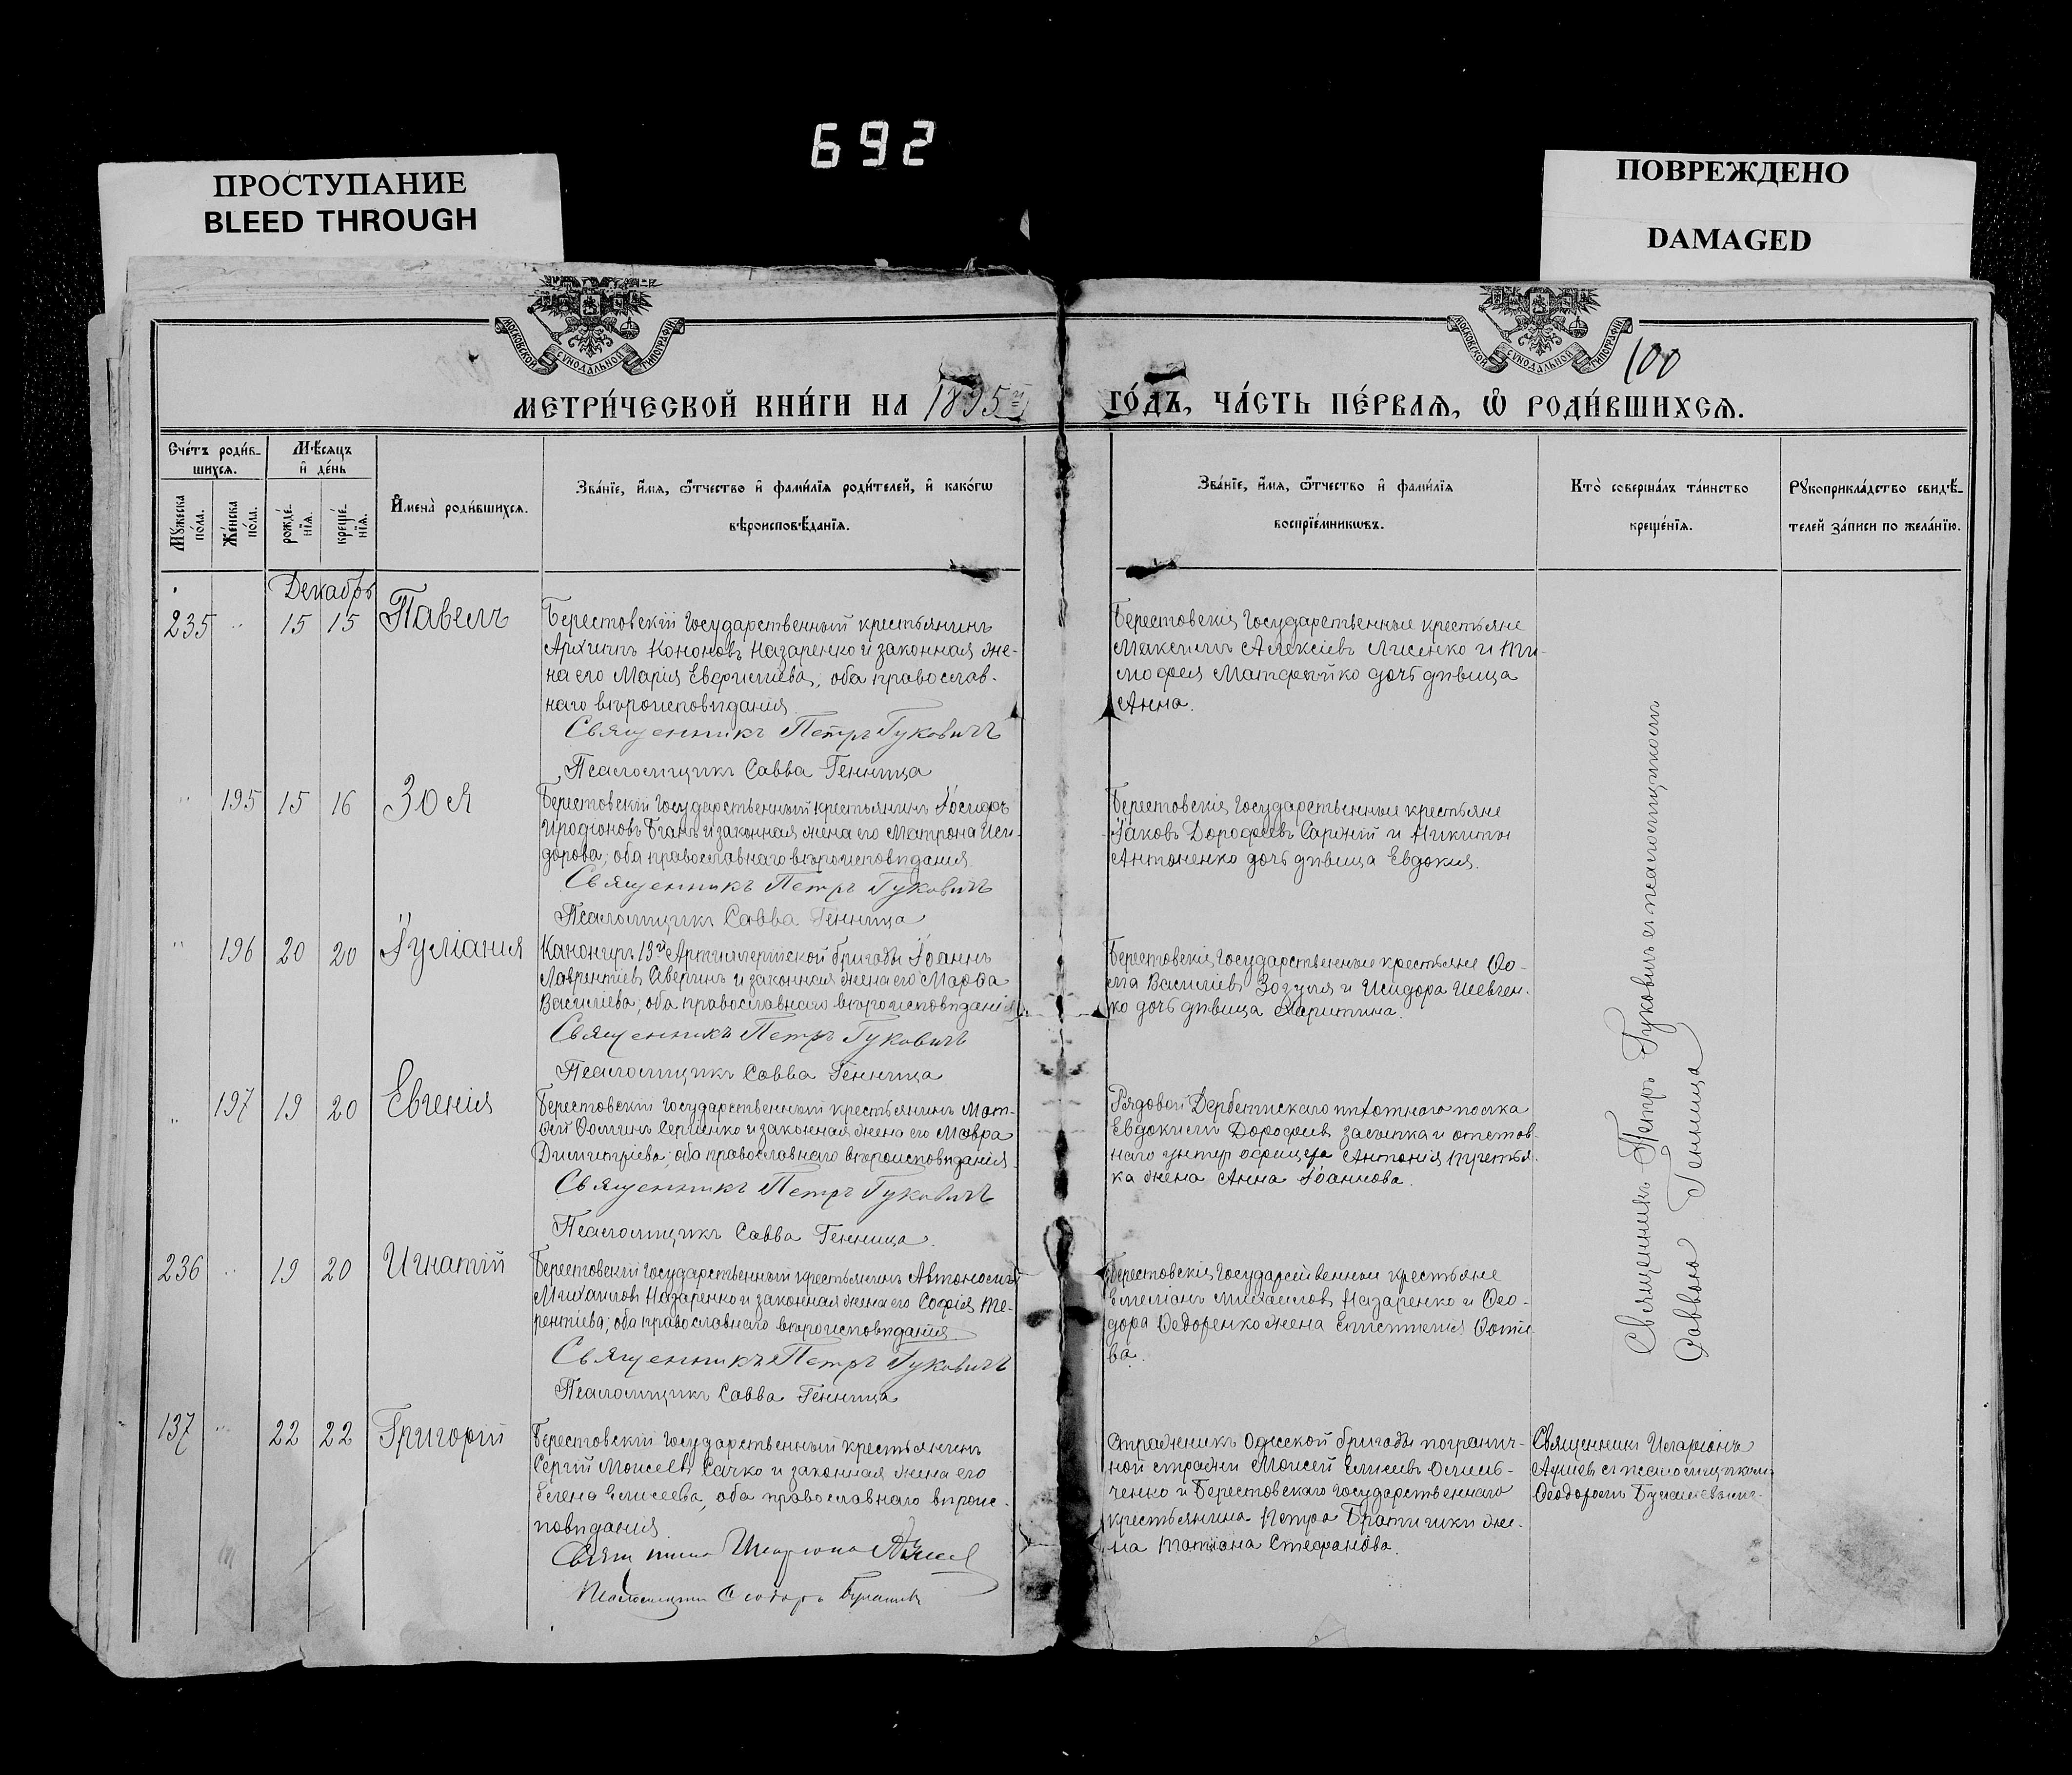 692
ПРОСТУПАНИЕ
BLEED THROUGH
ПОВРЕЖДЕНО
DAMAGED
МОСКОВСКОЙ СУНОДАЛЬНОЙ ТИПОГРАФІИ
МОСКОВСКОЙ СУНОДАЛЬНОЙ ТИПОГРАФІИ
100
МЕТРИ́ЧЕСКОЙ КНИ́ГИ НА 1895й ГО́ДЪ, ЧА́СТЬ ПЕ́РВАѦ, Ѡ҆ РОДИ́ВШИХСѦ.
Сче́тъ роди́в-
шихсѧ.
Мѣ́сѧцъ
и҆ де́нь
Мꙋ́жеска
по́ла.
Же́нска
по́ла.
рожде́-
нїѧ.
креще́-
нїѧ.
И҆мена̀ роди́вшихсѧ.
Зва́нїе, и҆́мѧ, ѻ҆́тчество и҆ фами́лїѧ роди́телей, и҆ како́гѡ
вѣроисповѣ́данїѧ.
Зва́нїе, и҆́мѧ, ѻ҆́тчество и҆ фами́лїѧ
воспрїе́мникѡвъ.
Кто̀ соверша́лъ та́инство
креще́нїѧ.
Рꙋкоприкла́дство свидѣ́-
телей за́писи по жела́нїю.
Декабрь
235 " 15 15 Павелъ
Берестовскій государственный крестьянинъ
Архипъ Кононовъ Назаренко и законная же-
на его Марія Евфиміева, оба православ-
наго вѣроисповѣданія.
Священникъ Петръ Гуковичъ
Псаломщикъ Савва Генница
Берестовскія государственные крестьяне
Максимъ Алексіевъ Лисенко и Ти-
мофея Матфейко дочь дѣвица
Анна.
" 195 15 16 Зоя
Берестовскій государственный крестьянинъ Іосифъ
Иродіоновъ Бганъ и законная жена его Матрона Иси-
дорова; оба православнаго вѣроисповѣданія
Священникъ Петръ Гуковичъ
Псаломщикъ Савва Генница
Берестовскія государственные крестьяне
Іаковъ Дорофеевъ и Никиты
Антоненко дочь дѣвица Евдокія.
" 196 20 20 Іуліанія
Канониръ 13й Артиллерійской бригады Іоаннъ
Лаврентіевъ Севергинъ и законная жена его Марѳа
Васильева; оба православнаго вѣроисповѣданія
Священникъ Петръ Гуковичъ
Псаломщикъ Савва Генница
Берестовскія государственные крестьяне Ѳо-
ма Васильевъ Зозуля и Исидора Шевчен-
ко дочь дѣвица Харитина.
" 197 19 20 Евгенія
Берестовскій государственный крестьянинъ Мат-
ѳей Ѳоминъ Сергіенко и законная жена его Мавра
Димитріева; оба православнаго вѣроисповѣданія
Священникъ Петръ Гуковичъ
Псаломщикъ Савва Генница.
Рядовой Дербентскаго пѣхотнаго полка
Евдокимъ Дорофеевъ Засыпка и отстав-
наго унтеръ офицера Антонія
жена Анна Іоаннова.
236 " 19 20 Игнатій
Берестовскій государственный крестьянинъ Автономъ
Михаиловъ Назаренко и законная жена его Софія Те-
рентіева; оба православнаго вѣроисповѣданія
Священникъ Петръ Гуковичъ
Псаломщикъ Савва Генница
Берестовскія государственныи крестьяне
Емеліанъ Михаиловъ Назаренко и Ѳео-
дора Ѳедоренко жена Епистимія Ѳоти-
ва.
Священникъ Петръ Гуковичъ съ псаломщикомъ
Саввою Генница
137 " 22 22 Григорій
Берестовскій государственный крестьянинъ
Сергій Моисеевъ Сачко и законная жена его
Елена Елисеева, оба православнаго вѣроис-
повѣданія.
Священникъ Иларіонъ
Псаломщикъ Ѳеодоръ
Стражникъ Одесской бригады погранич-
ной стражи Моисей Елисеевъ
и Берестовскаго государственнаго
крестьянина Петра Братишки же-
на Татіана Стефанова.
Священникъ Иларіонъ
съ псаломщикомъ
Ѳеодоромъ